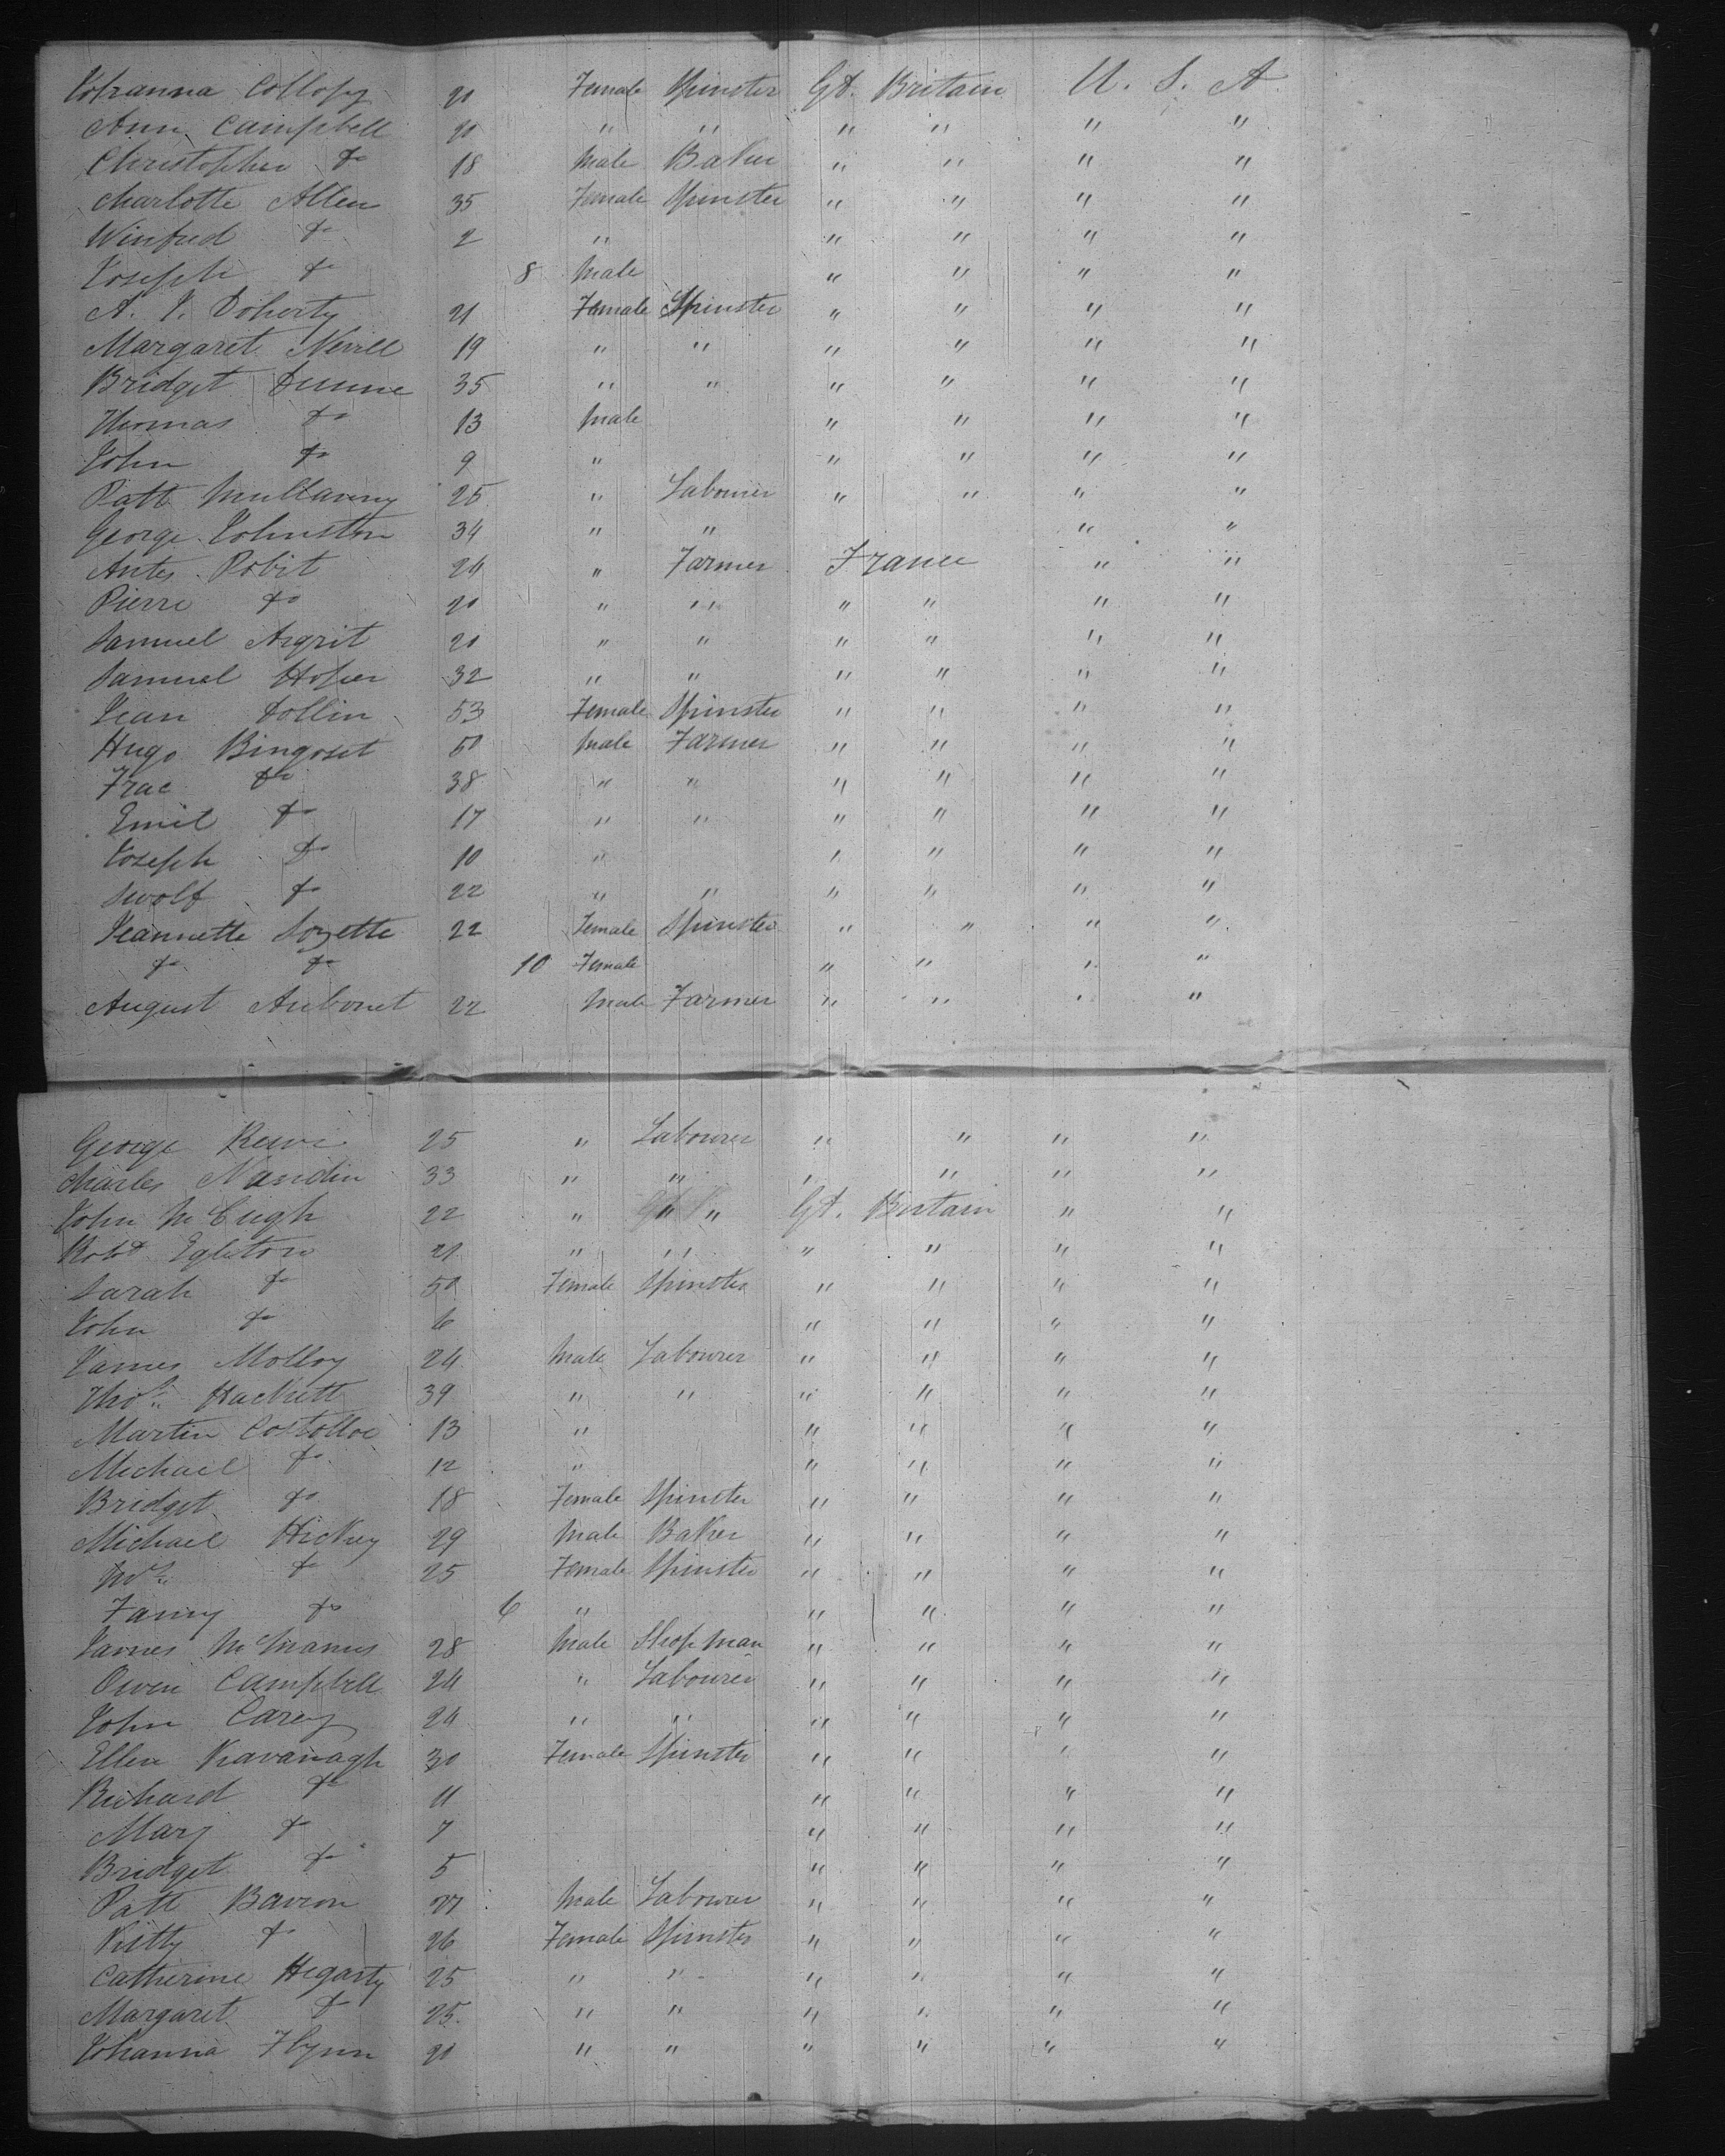 Johanna Collopy 20 Female Spinster Gt. Britain U. S. A
Ann Campbell 20 " " " " " "
Christopher do 18 Male Baker " " " "
Charlotte Allen 35 Female Spinster " " " "
Winfred do 2 " " " " "
Joseph do 8 Male " " " "
A. J. Doherty 21 Female Spinster " " " "
Margaret Nevill 19 " " " " " "
Bridget Dunne 35 " " " " " "
Thomas do 13 Male " " " "
John do 9 " " " " "
Patt Mullanny 25 " Labourer " " " "
George Johnston 34 " " " "
Antes Robit 24 " Farmer France " "
Pierre do 20 " " " " " "
Samuel Argrit 20 " " " " " "
Samuel Hofer 32 " " " " " "
Jean Dollin 53 Female Spinster " " " "
Hugo Bingoset 50 Male Farmer " " " "
Frac do 38 " " " " " "
Emil do 17 " " " " " "
Joseph do 10 " " " " "
Swolf do 22 " " " " " "
Jeannette Sozette 22 Female Spinster " " " "
do do 10 Female " " " "
August Aubonet 22 Male Farmer " " " "
George 25 " Labourer " " " "
Charles Nandin 33 " " " " " "
John McCugh 22 " " Gt. Britain " "
Robt Egleton 21 " " " " " "
Sarah do 50 Female Spinster " " " "
John do 6 " " " "
James Molloy 24 Male Labourer " " " "
Thos. Hackett 39 " " " " " "
Martin Costolloe 13 " " " " "
Michael do 12 " " " " "
Bridget do 18 Female Spinster " " " "
Michael Hickey 29 Male Baker " " " "
Mrs. do 25 Female Spinster " " " "
Fanny do 6 " " " " "
James McManus 28 Male Shop man " " " "
Owen Campbell 24 " Labourer " " " "
John Carey 24 " " " " " "
Ellen Kavanagh 30 Female Spinster " " " "
Richard do 11 " " " "
Mary do 7 " " " "
Bridget do 5 " " " "
Patt Bavron 27 Male Labourer " " " "
Kitty do 26 Female Spinster " " " "
Catherine Hegarty 25 " " " " " "
Margaret do 25 " " " " " "
Johanna Flynn 20 " " " " " "